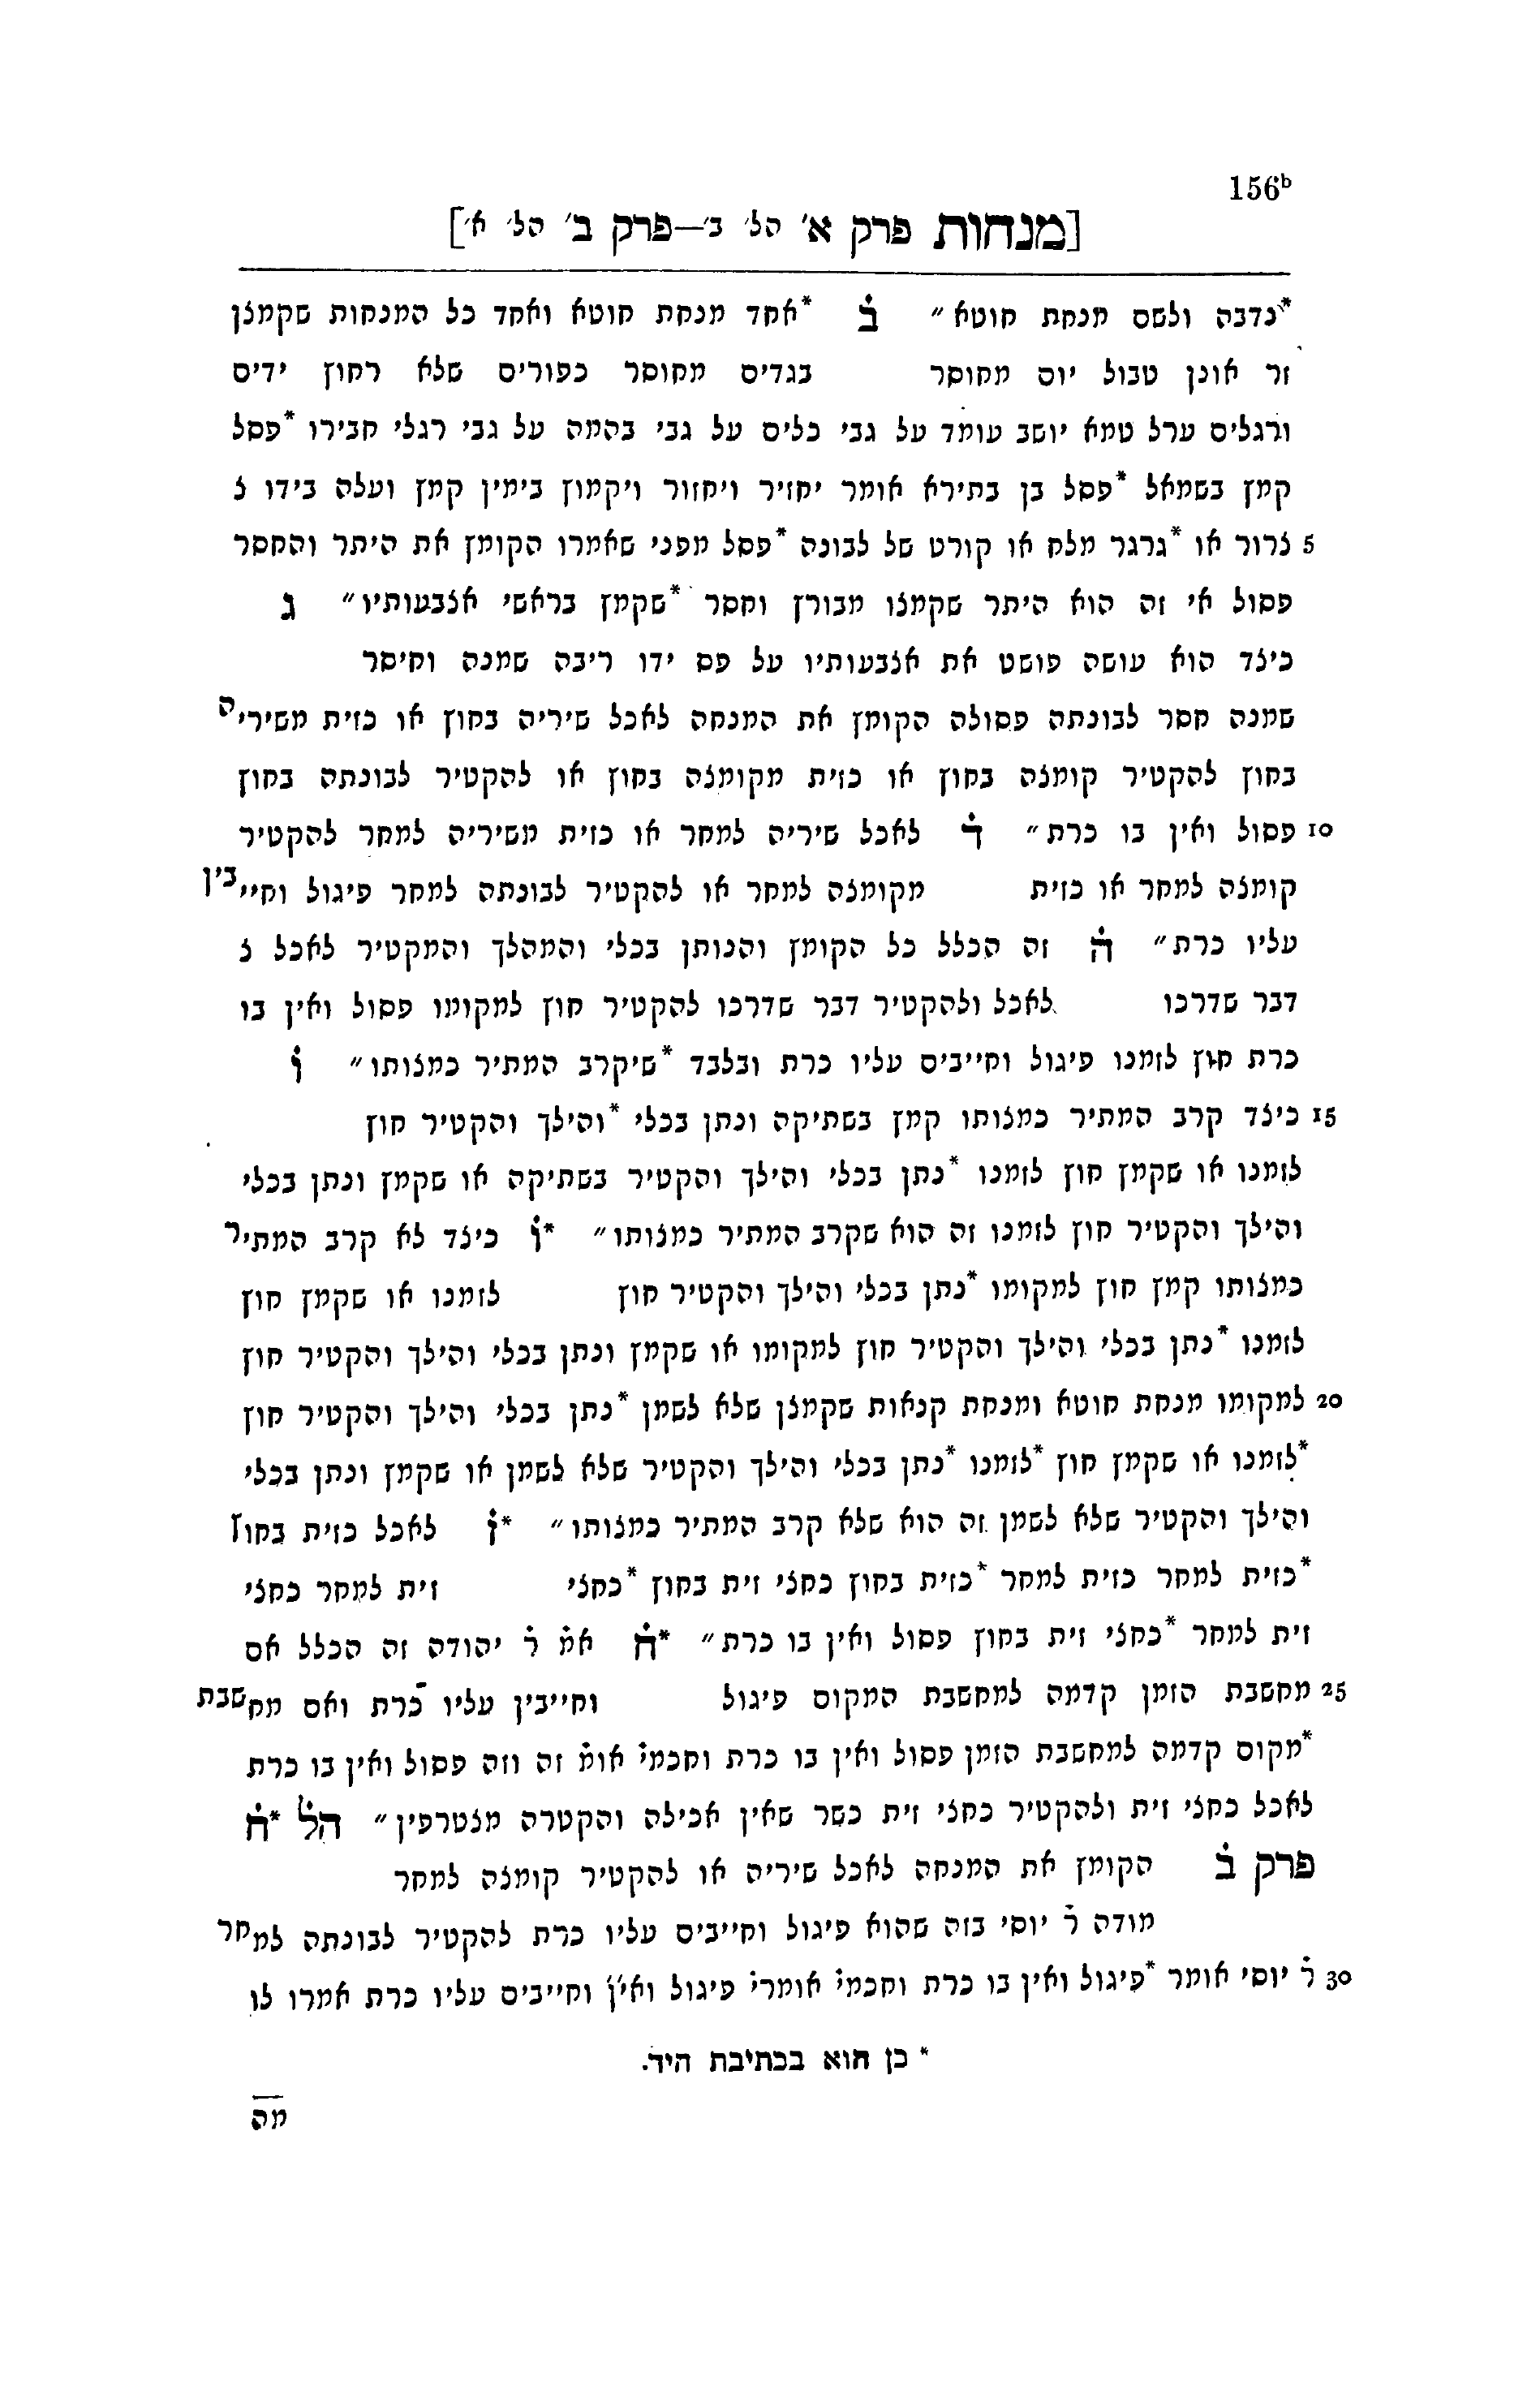 156ᵇ
[מנחות פרק א׳ הל׳ ב׳—פרק ב׳ הל׳ א׳]
*נדבה ולשם מנחת חוטא״ בׄ *אחד מנחת חוטא ואחד כל המנחות שקמצן
זר אונן טבול יום מחוסר בגדים מחוסר כפורים שלא רחוץ ידים
ורגלים ערל טמא יושב עומד על גבי כלים על גבי בהמה על גבי רגלי חבירו *פסל
קמץ בשמאל *פסל בן בתירא אומר יחזיר ויחזור ויקמוץ בימין קמץ ועלה בידו צ
5 צרור או *גרגר מלח או קורט של לבונה *פסל מפני שאמרו הקומץ את היתר והחסר
פסול אי זה הוא היתר שקמצו מבורץ וחסר *שקמץ בראשי אצבעותיו״ ג
כיצד הוא עושה פושט את אצבעותיו על פס ידו ריבה שמנה וחיסר
שמנה חסר לבונתה פסולה הקומץ את המנחה לאכל שיריה בחוץ או כזית משיריה
בחוץ להקטיר קומצה בחוץ או כזית מקומצה בחוץ או להקטיר לבונתה בחוץ
10 פסול ואין בו כרת״ דׄ לאכל שיריה למחר או כזית משיריה למחר להקטיר
קומצה למחר או כזית מקומצה למחר או להקטיר לבונתה למחר פיגול וחייבין
עליו כרת״ הׄ זה הכלל כל הקומץ והנותן בכלי והמהלך והמקטיר לאכל צ
דבר שדרכו לאכל ולהקטיר דבר שדרכו להקטיר חוץ למקומו פסול ואין בו
כרת חוץ לזמנו פיגול וחייבים עליו כרת ובלבד *שיקרב המתיר כמצותו״ וׄ
15 כיצד קרב המתיר כמצותו קמץ בשתיקה ונתן בכלי *והילך והקטיר חוץ
לזמנו או שקמץ חוץ לזמנו *נתן בכלי והילך והקטיר בשתיקה או שקמץ ונתן בכלי
והילך והקטיר חוץ לזמנו זה הוא שקרב המתיר כמצותו״ *וׄ כיצד לא קרב המתיר
כמצותו קמץ חוץ למקומו *נתן בכלי והילך והקטיר חוץ לזמנו או שקמץ חוץ
לזמנו *נתן בכלי והילך והקטיר חוץ למקומו או שקמץ ונתן בכלי והילך והקטיר חוץ
20 למקומו מנחת חוטא ומנחת קנאות שקמצן שלא לשמן *נתן בכלי והילך והקטיר חוץ
*לזמנו או שקמץ חוץ *לזמנו *נתן בכלי והילך והקטיר שלא לשמן או שקמץ ונתן בכלי
והילך והקטיר שלא לשמן זה הוא שלא קרב המתיר כמצותו״ *זׄ לאכל כזית בחוץ
*כזית למחר כזית למחר *כזית בחוץ כחצי זית בחוץ *כחצי זית למחר כחצי
זית למחר *כחצי זית בחוץ פסול ואין בו כרת״ *חׄ אמׄ רׄ יהודה זה הכלל אם
25 מחשבת הזמן קדמה למחשבת המקום פיגול וחייבין עליו כרת ואם מחשבת
*מקום קדמה למחשבת הזמן פסול ואין בו כרת וחכמיׄ אומׄ זה וזה פסול ואין בו כרת
לאכל כחצי זית ולהקטיר כחצי זית כשר שאין אכילה והקטרה מצטרפין״ הלׄ *חׄ
פרק בׄ הקומץ את המנחה לאכל שיריה או להקטיר קומצה למחר
מודה רׄ יוסי בזה שהוא פיגול וחייבים עליו כרת להקטיר לבונתה למחר
30 רׄ יוסי אומר *פיגול ואין בו כרת וחכמיׄ אומריׄ פיגול ואין וחייבים עליו כרת אמרו לו
* כן הוא בכתיבת היד.
מה